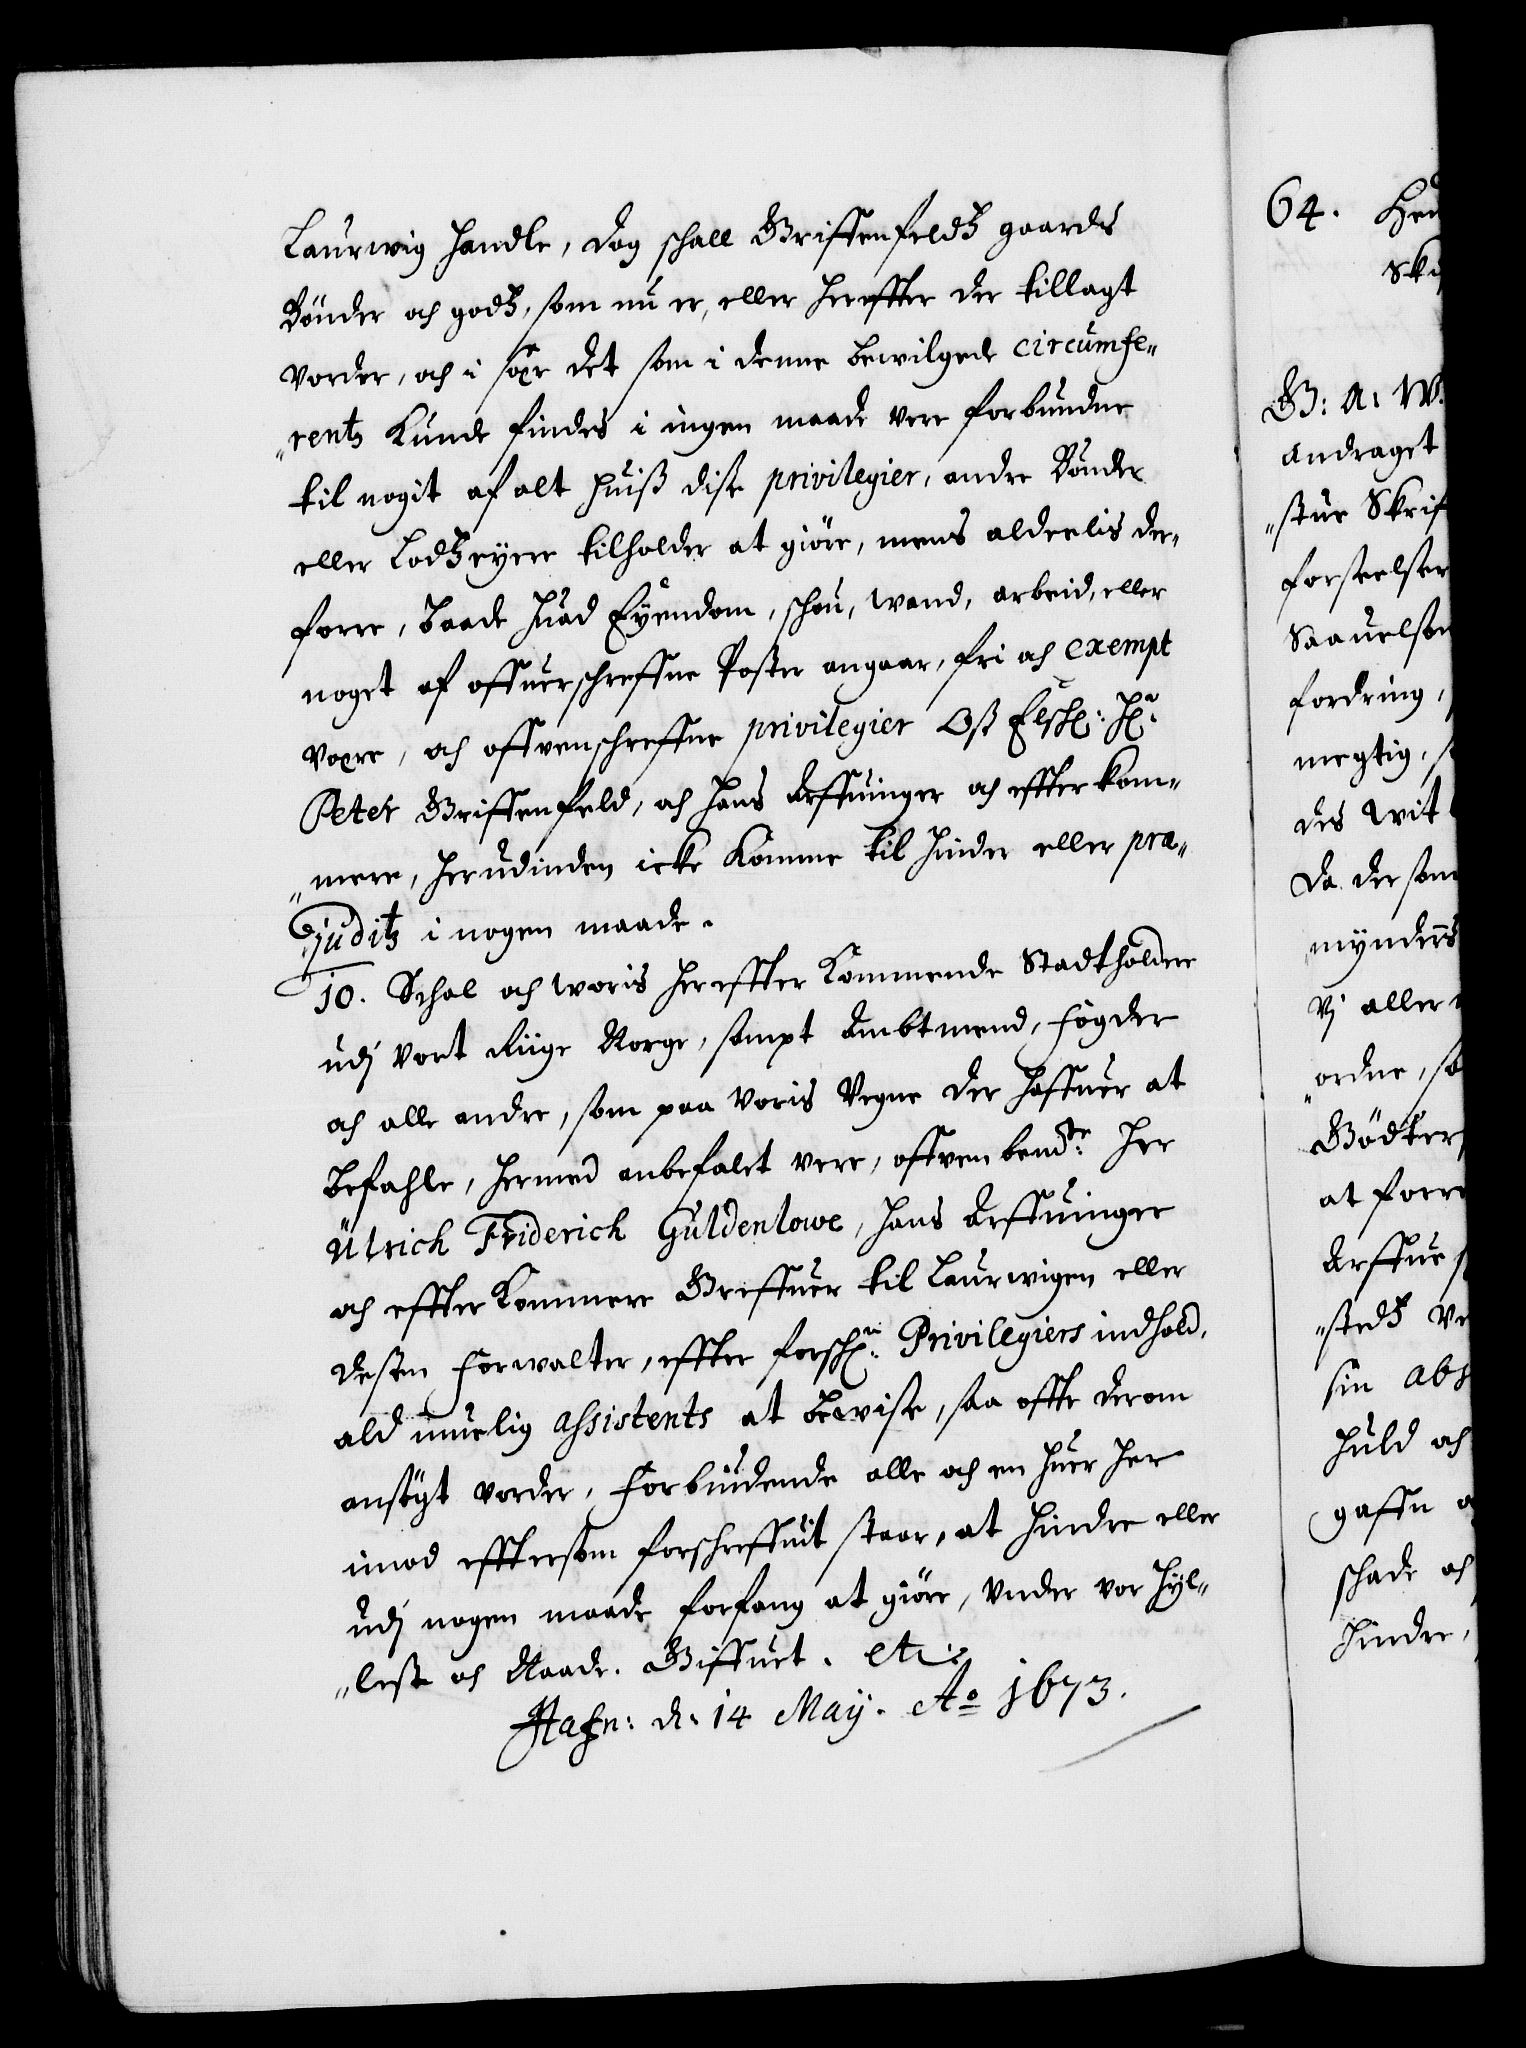 Laurwig handle, dog schall Griffenfeldtz gaards
Bönder och godtz, som nu er, eller herefter der tillagt
vorder, och i sær det som i denne bewilgede circumfe„
„rentz kunde findes i ingen maade vere forbundne
til nogit af alt huiß dise privilegier, andre Bönder
eller Lodtzeyere tilholder at giöre, mens alderlis der„
forre, baade huad Eyendom, schou, wand, arbeid, eller
noget af offuerschreffne Poster angaar, fri och exempt
være, och offvenschreffne privilegier Oß Elschl: Hr:
Peter Griffenfeld, och hans Arffuinger och effterkom„
„mere, herudinden icke komme til hinder eller præ„
„juditz i nogen maade.
10. Schal och woris hereffter kommende Stadtholdere
udj vort Riige Norge, sampt Ambtmend, Fogder
och alle andre, som paa voris Vegne der haffuer at
befahle, hermed anbefalet vere, offvenbemdte: Her
Ulrich Friderich Guldenlowe, hans Arffuinger
och effterkommere Greffuer til Laurwigen eller
desten Forwalter, effter forschne: Privilegiers indhold,
ald muelig assistents at bewise, saa offte derom
ansögt vorder, Forbiudende alle och en huer her
imod efftersom forschreffuit staar, at hindre eller
udj nogen maade forfang at giöre, under vor Hyl„
„leste och Naade. Giffuet. etc:
Hafn: d: 14 May. Ao 1673.
64. Hen
Ski
G: A: W.
andraget
„stue Skrif
forseelser
Saauelsom
fordring,
megtig, s
des wit
da dersom
mynders
Vj aller
„ordne, sa
Bödker
at forre
Arffue
„stedtz ve
sin abs
huld och
gaffn o
schade och
hindre,